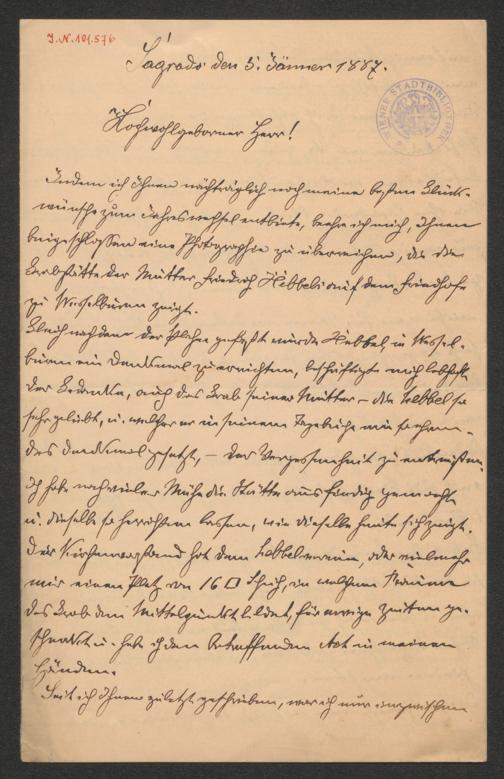 J.N. 101.576
WIENER STADTBIBLIOTHEK
Sagrado den 5. Jänner 1887.
Hochwohlgeborner Herr!
Indem ich Ihnen nachträglich noch meine besten Glück-
wünsche zum Jahreswechsel entbiete, beehre ich mich, Ihnen
beigeschlossen eine Photographie zu überreichen, die die
Grabstätte der Mutter Friedrich Hebbels auf dem Friedhofe
zu Wesselburen zeigt.
Gleich nachdem der Plan gefaßt wurde Hebbel, in Wessel-
buren ein Denkmal zu errichten, beschäftigte mich lebhaft
der Gedanke, auch das Grab seiner Mutter – die Hebbel so
sehr geliebt, u. welcher er in seinem Tagebuche ein
des Denkmal gesetzt, – der Vergessenheit zu entreißen.
Ich habe nach vieler Mühe die Stätte ausfindig gemacht
u. dieselbe so herrichten lassen, wie dieselbe heute sich zeigt.
Der Kirchenvorstand hat dem Hebbelverein, oder vielmehr
mir einen Platz von 16 □ Schuh, in welchem Raume
das Grab den Mittelpunkt bildet, für ewige Zeiten ge-
schenkt u. habe ich den betreffenden Act in meinen
Händen.
Seit ich Ihnen zuletzt geschrieben, war ich nun inzwischen